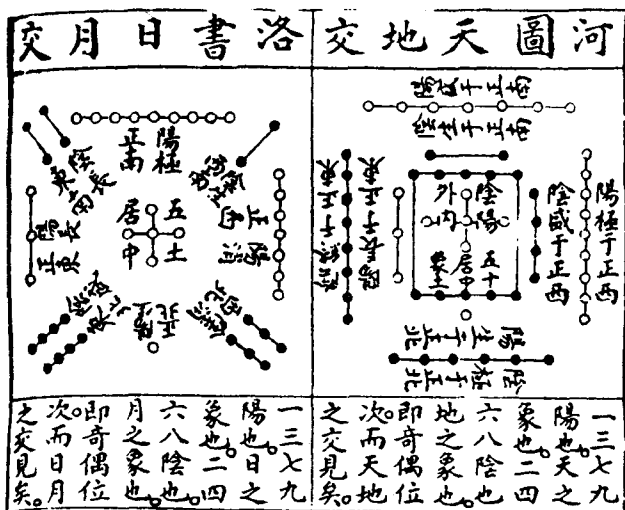 河圖天地交
陽盛于正南
陰生于正南
陽極于正西
陰盛于正西
陰陽
外内
五十
居中
象土
陽長于正東
陽生于正北
陰極于正北
一三七九
陽也。天之
象也。二四
六八陰也
地之象也。
即奇偶位
次。而天地
之交見矣。
洛書日月交
陽極
正南
五土
居中
正西
陽消
陽長
正東
陽生
正北
一三七九
陽也。日之
象也。二四
六八陰也。
月之象也。
即奇偶位
次。而日月
之交見矣。